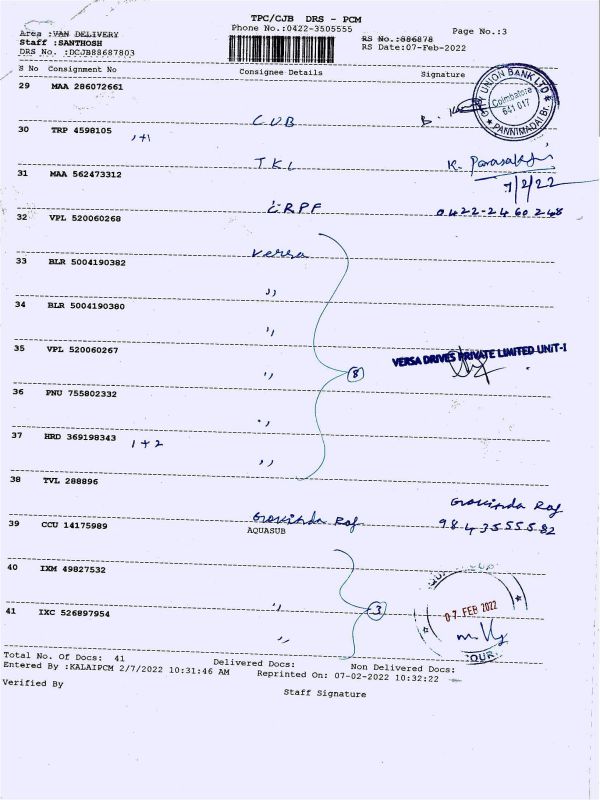 TPC/CJB DRS - PCM
Area :VAN DELIVERY Phone No.:0422-3505555 Page No.:3
Staff :SANTHOSH RS No.:886878
DRS No. :DCJB88687803 RS Date:07-Feb-2022
S No Consignment No Consignee Details Signature
29 MAA 286072661 CUB B.
UNION BANK LTD
Coimbatore
641 017
PANNIMADAI Br.
30 TRP 4598105 1+1 TKL K.
7/2/22
31 MAA 562473312 CRPF 0422-2460248
32 VPL 520060268 Versa
33 BLR 5004190382 ,,
34 BLR 5004190380 ,,
35 VPL 520060267 ,, 8 VERSA DRIVES PRIVATE LIMITED UNIT-I
36 PNU 755802332 ,,
37 HRD 369198343 1+2 ,,
38 TVL 288896 Govinda Raj Govinda Raj
9843555582
39 CCU 14175989 AQUASUB
40 IXM 49827532 ,, 3 07 FEB 2022
41 IXC 526897954 ,,
Total No. Of Docs: 41 Delivered Docs: Non Delivered Docs:
Entered By :KALAIPCM 2/7/2022 10:31:46 AM Reprinted On: 07-02-2022 10:32:22
Verified By Staff Signature